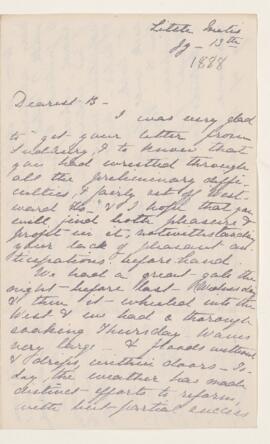 Little Metis
Jy - 13th
1888
Dearest B -
I was very glad
to get your letter from
& to know that
you had wrestled through
all the preliminary diffi-
culties, & fairly set off West-
ward ho. & I hope that you
will find both pleasure &
profit in it, notwithstanding
your lack of pleasant
before hand.
We had a great gale the
night before last - Wednesday
& then it wheeled into the
West & we had a thorough
soaking Thursday. Waves
very large - & floods without
& drops within doors - To-
day the weather has made
distinct efforts to reform,
with but partial success